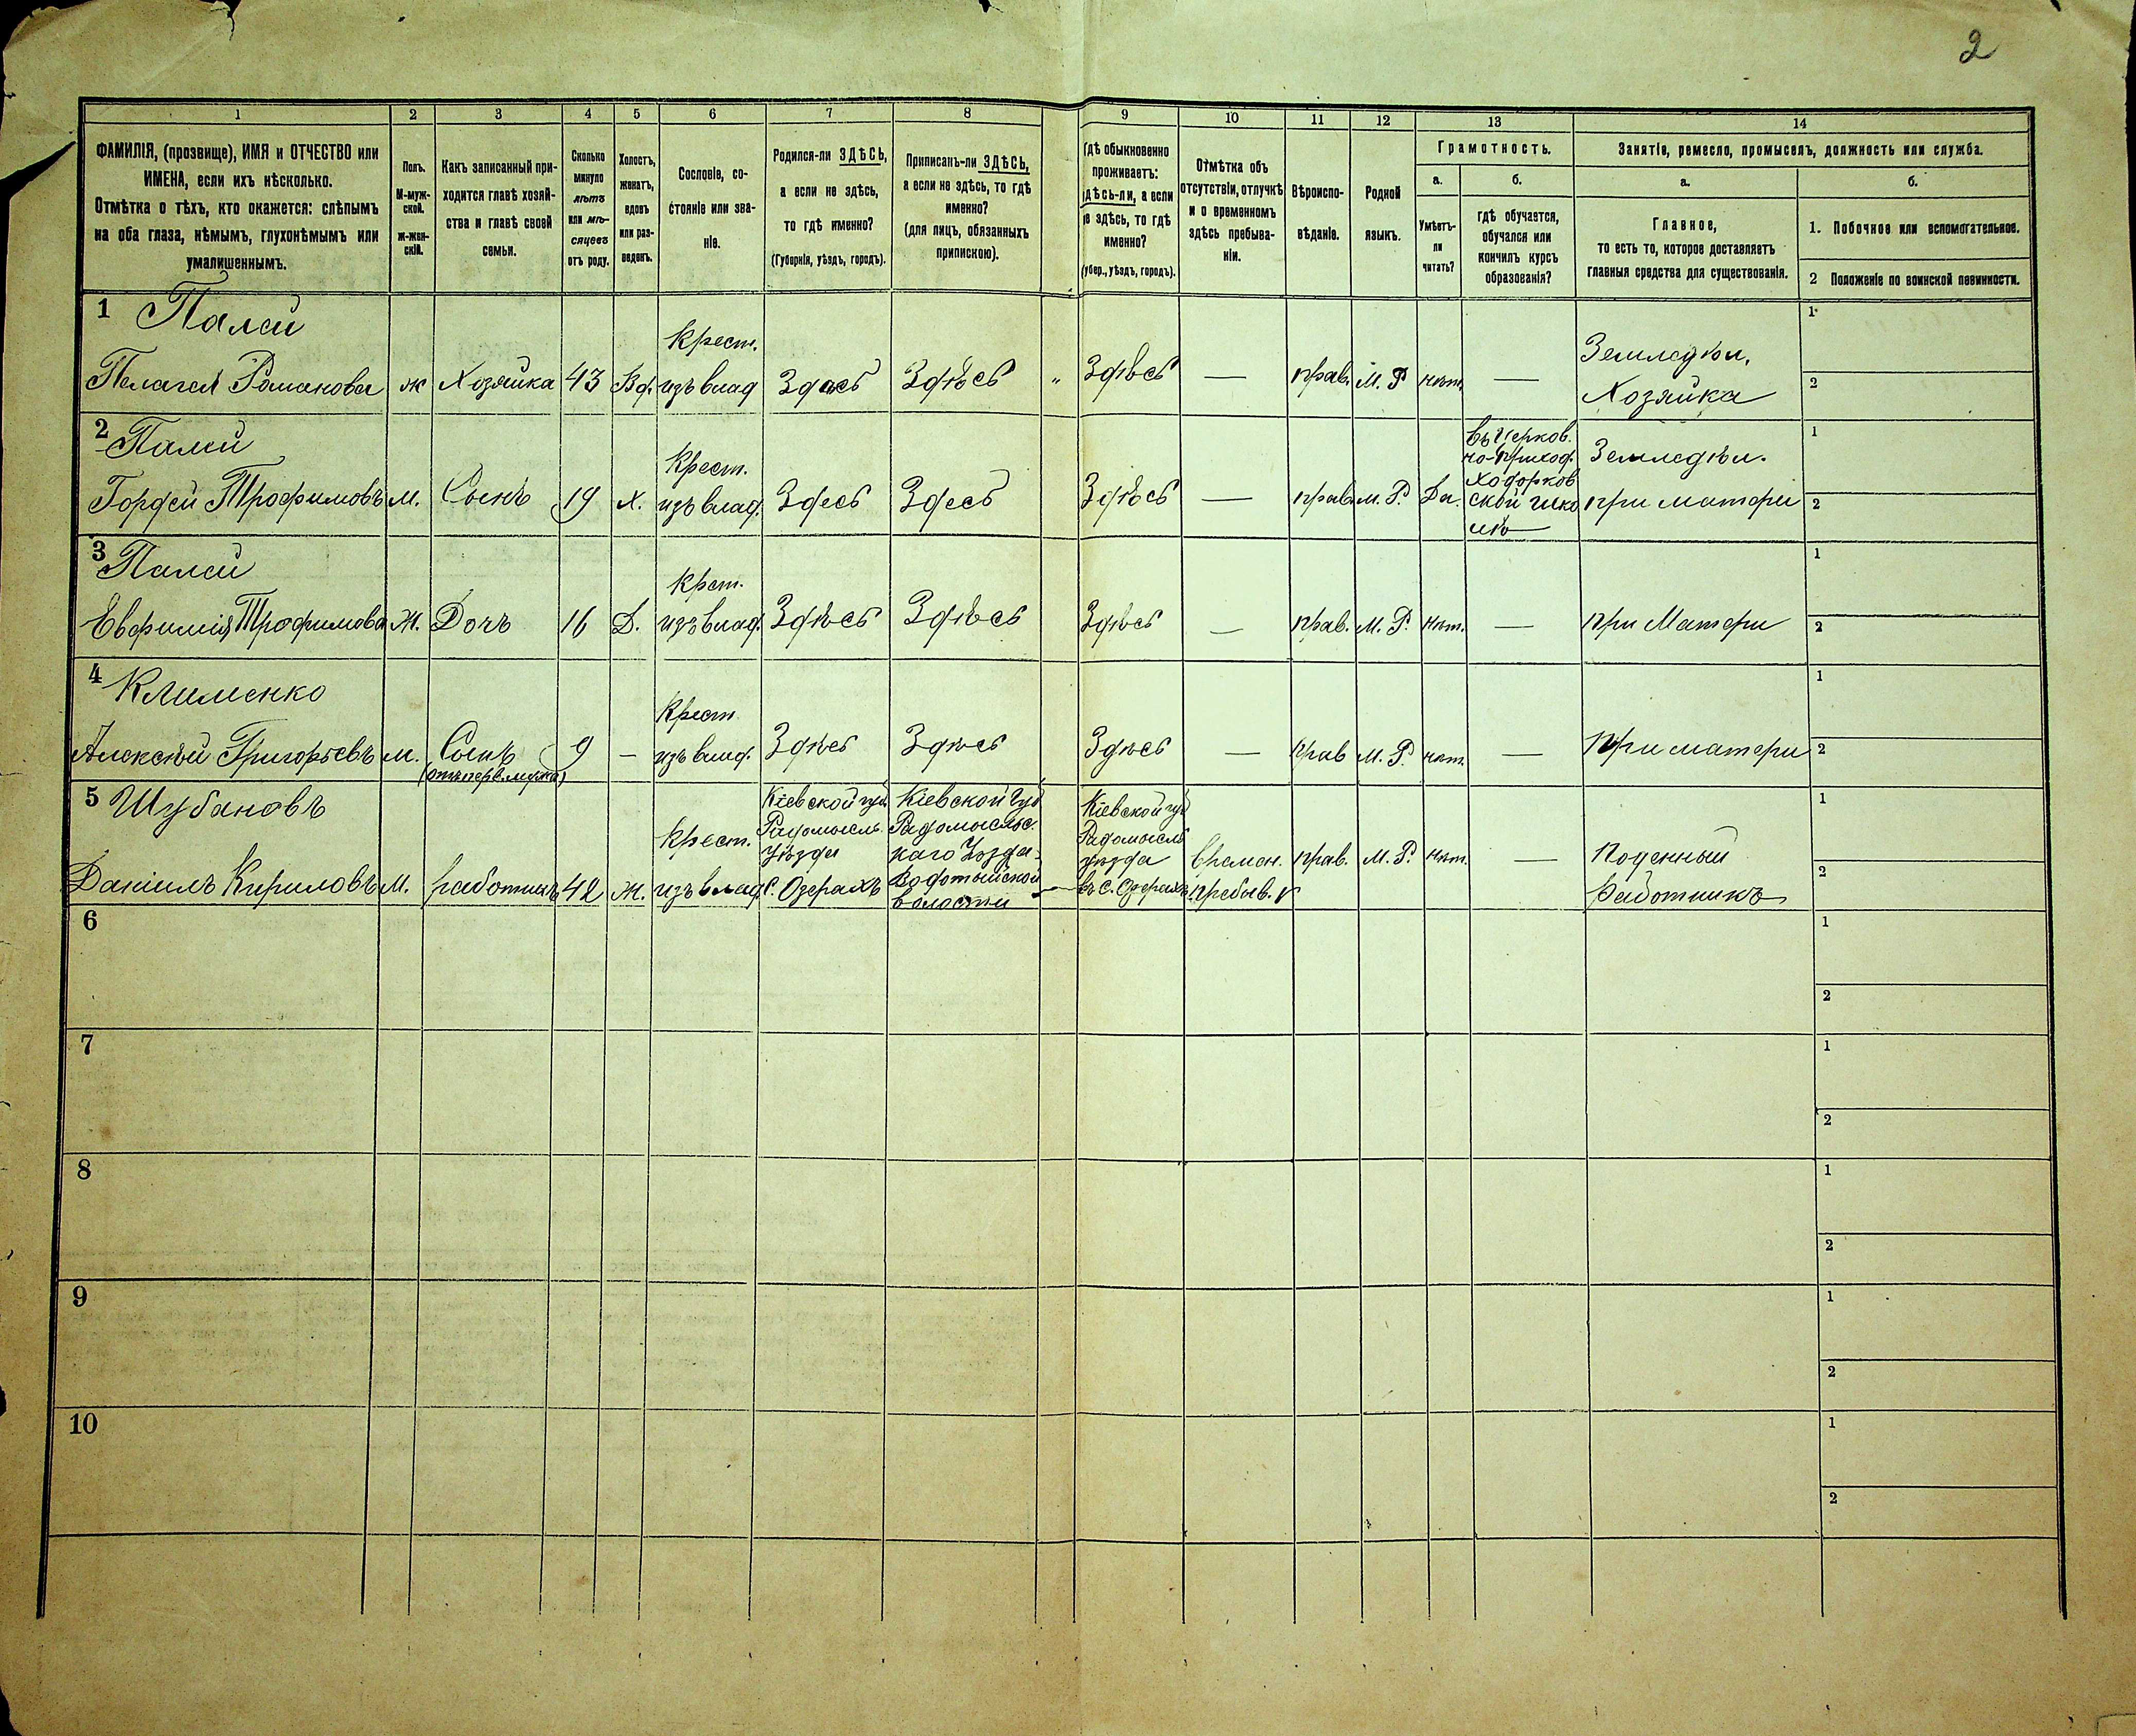 2
1 2 3 4 5 6 7 8 9 10 11 12 13 14
ФАМИЛІЯ, (прозвище), ИМЯ и ОТЧЕСТВО или
ИМЕНА, если ихъ нѣсколько.
Отмѣтка о тѣхъ, кто окажется: слѣпымъ
на оба глаза, нѣмымъ, глухонѣмымъ или
умалишеннымъ.
Полъ.
М-муж-
ской.
ж-жен-
скій.
Какъ записанный при-
ходится главѣ хозяй-
ства и главѣ своей
семьи.
Сколько
минуло
лѣтъ
или мѣ-
сяцевъ
отъ роду.
Холостъ,
женатъ,
вдовъ
или раз-
веденъ.
Сословіе, со-
стояніе или зва-
ніе.
Родился-ли ЗДѢСЬ,
а если не здѣсь,
то гдѣ именно?
(Губернія, уѣздъ, городъ).
Приписанъ-ли ЗДѢСЬ,
а если не здѣсь, то гдѣ
именно?
(для лицъ, обязанныхъ
припискою).
гдѣ обыкновенно
проживаетъ:
здѣсь-ли, а если
не здѣсь, то гдѣ
именно?
(губер., уѣздъ, городъ).
Отмѣтка объ
отсутствіи, отлучкѣ
и о временномъ
здѣсь пребыва-
ніи.
Вѣроиспо-
вѣданіе.
Родной
языкъ.
Грамотность.
а.
Умѣетъ-
ли
читать?
б.
гдѣ обучается,
обучался или
кончилъ курсъ
образованія?
Занятіе, ремесло, промыселъ, должность или служба.
а.
Главное,
то есть то, которое доставляетъ
главныя средства для существованія.
б.
1. Побочное или вспомогательное.
2 Положеніе по воинской повинности.
1 Палей
Пелагея Романова
ж
Хозяйка
43
Вд.
Крест.
изъ влад
Здѣсь
Здѣсь
"
Здѣсь
—
прав.
М. Р
нѣт.
—
Земледѣл.
Хозяйка
1
2
2 Палей
Гордей Трофимовъ
М.
Сынъ
19
Х.
Крест.
изъ влад.
Здесь
Здесь
Здѣсь
—
прав.
М. Р.
Да.
въ Церков.
но-приход.
Ходорков
ской шко
лѣ
Земледѣл.
при матери
1
2
3 Палей
Евфимія Трофимова
Ж.
Дочь
16
Д.
Крст.
изъ влад.
Здѣсь
Здѣсь
Здѣсь
—
прав.
М. Р.
нѣт.
—
при Матери
1
2
4 Клименко
Алексѣй Григорьевъ
М.
Сынъ
(отъ перв. мужа)
9
—
Крест
изъ влад.
Здѣсь
Здѣсь
Здѣсь
—
прав
М. Р.
нѣт.
—
при матери
1
2
5 Шубановъ
Даніилъ Кириловъ
М.
работникъ
42
Ж.
Крест.
изъ влад.
Кіевской губ
Радомысль
уѣзда
С. Озерахъ
Кіевской Губ
Радомысльс
каго Уѣзда
Водотыйской
волости
Кіевской губ
Радомысль
уѣзда
въ С. Озерахъ
Времен.
пребыв.
прав.
М. Р.
нѣт.
—
Поденный
Работникъ
1
2
6
1
2
7
1
2
8
1
2
9
1
2
10
1
2